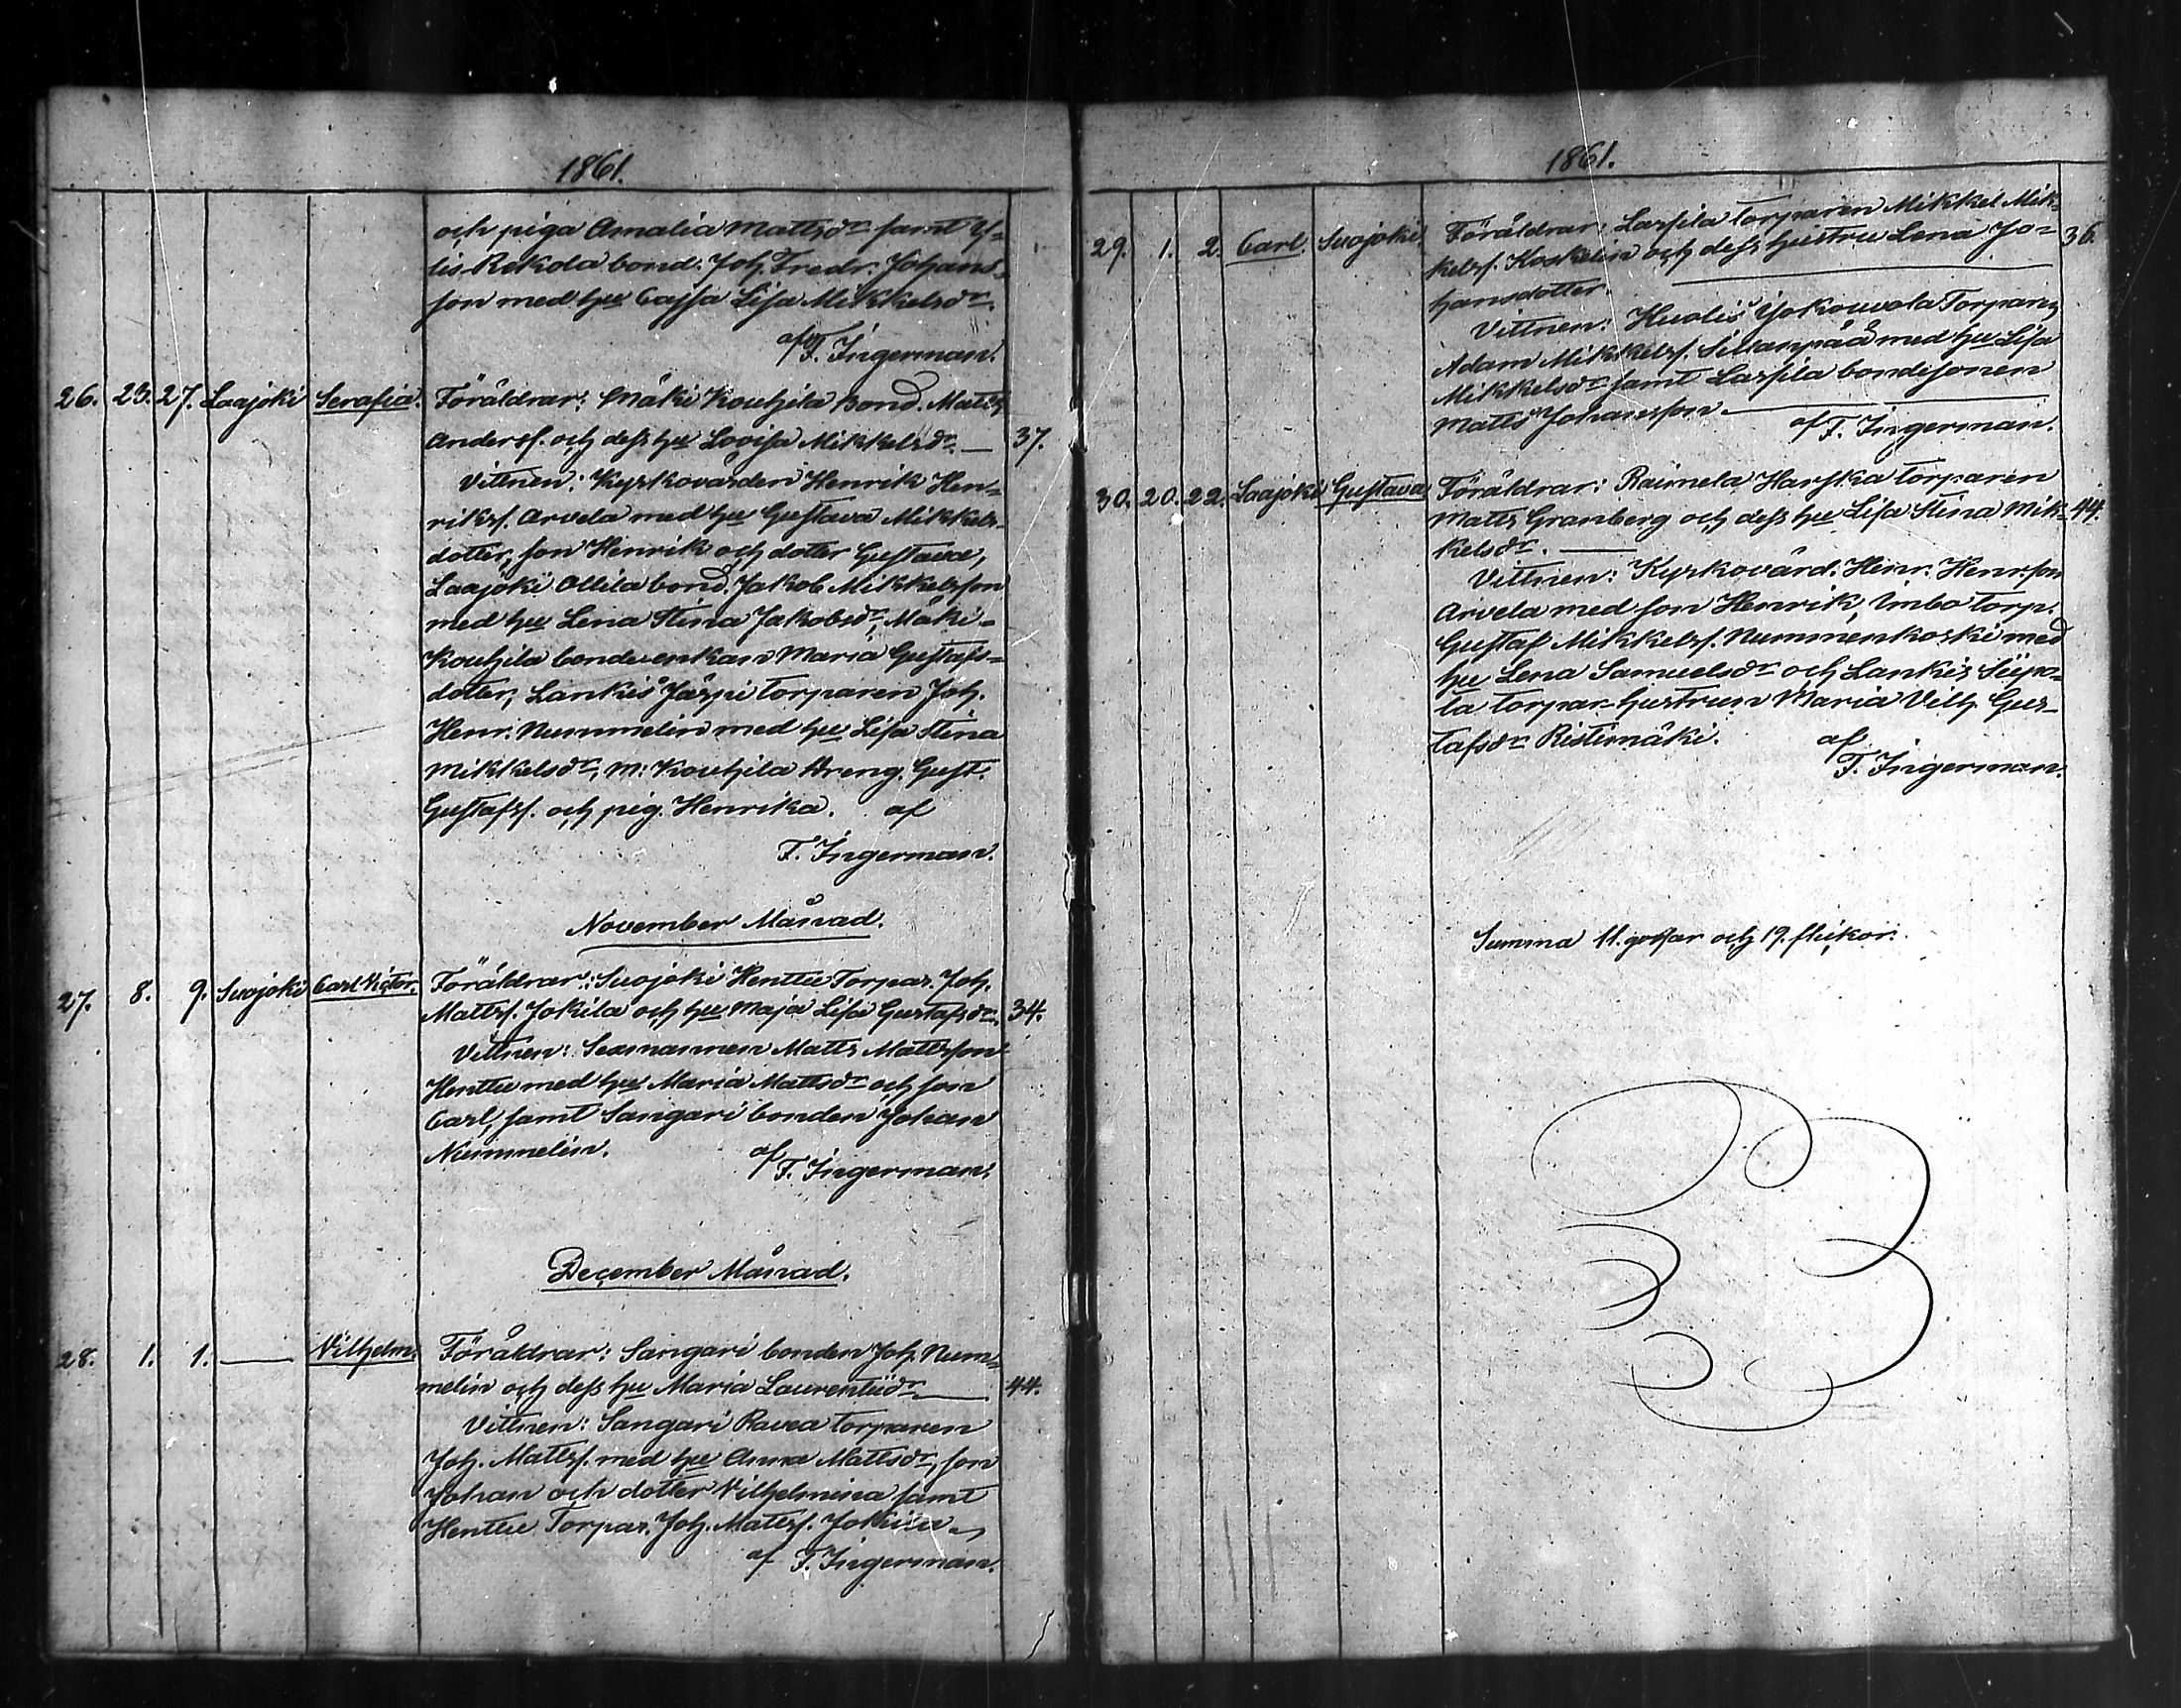 1861.
och piga Amalia Mattsdr samt Y-
lis Rekola bond. Joh. Fredr. Johans-
son med hu Cajsa Lisa Mikkelsdr.
af F. Ingerman.
26. 23. 27. Laajoki Serafia. Föräldrar: Mäki Kouhila Bond. Matts
Anderss. och dess hu Lovisa Mikkelsdr. — 37.
Vittnen: Kyrkovärden Henrik Hen-
rikss. Arvela med hu Gustava Mikkels-
dotter, son Henrik och dotter Gustava,
Laajoki Ollila bond. Jakob Mikkelsson
med hu Lena Stina Jakobsdr, Mäki-
Kouhila bonde enkan Maria Gustafs-
dotter, Lankis Järpi torparen Joh.
Henr. Nummelin med hu Lisa Stina
Mikkelsdr, M: Kouhila Dreng. Gust.
Gustafss. och pig. Henrika. af
F. Ingerman.
November Månad.
27. 8. 9. Suojoki Carl Victor. Föräldrar: Suojoki Henttu Torpar. Joh.
Mattss. Jokila och hu Maja Lisa Gustafsdr. 34.
Vittnen: Sexmannen Matts Mattsson
Henttu med hu Maria Mattsdr och son
Carl, samt Sangari bonden Johan
Nummelin. af F. Ingerman.
December Månad.
28. 1. 1. — Vilhelm. Föräldrar: Sangari bonden Joh. Num-
melin och dess hu Maria Laurentiidr — 44.
Vittnen: Sangari Ravea torparen
Joh. Mattss. med hu Anna Mattsdr, son
Johan och dotter Vilhelmina samt
Henttu Torpar. Joh. Mattss. Jokila
af F. Ingerman.
1861.
29. 1. 2. Carl. Suojoki Föräldrar: Lassila torparen Mikkel Mik- 36.
kelss. Koskelin och dess hustru Lena Jo-
hansdotter.
Vittnen: Huolis Yokouvola Torparen
Adam Mikkelss. Sillanpää med hu Lisa
Mikkelsdr samt Lassila bondesonen
Matts Johansson — af F. Ingerman.
30. 20. 22. Laajoki Gustava Föräldrar: Raimela Harska torparen
Matts Granberg och dess hu Lisa Stina Mik- 44.
kelsdr. —
Vittnen: Kyrkovärd. Henr. Henrson
Arvela med son Henrik, Imbo torp.
Gustaf Mikkelss. Nummenkoski med
hu Lena Samuelsdr och Lankis Seppä-
lä torpar hustrun Maria Vilh. Gus-
tafsdr Ristimäki. af
F. Ingerman.
Summa 11. gossar och 19. flickor.